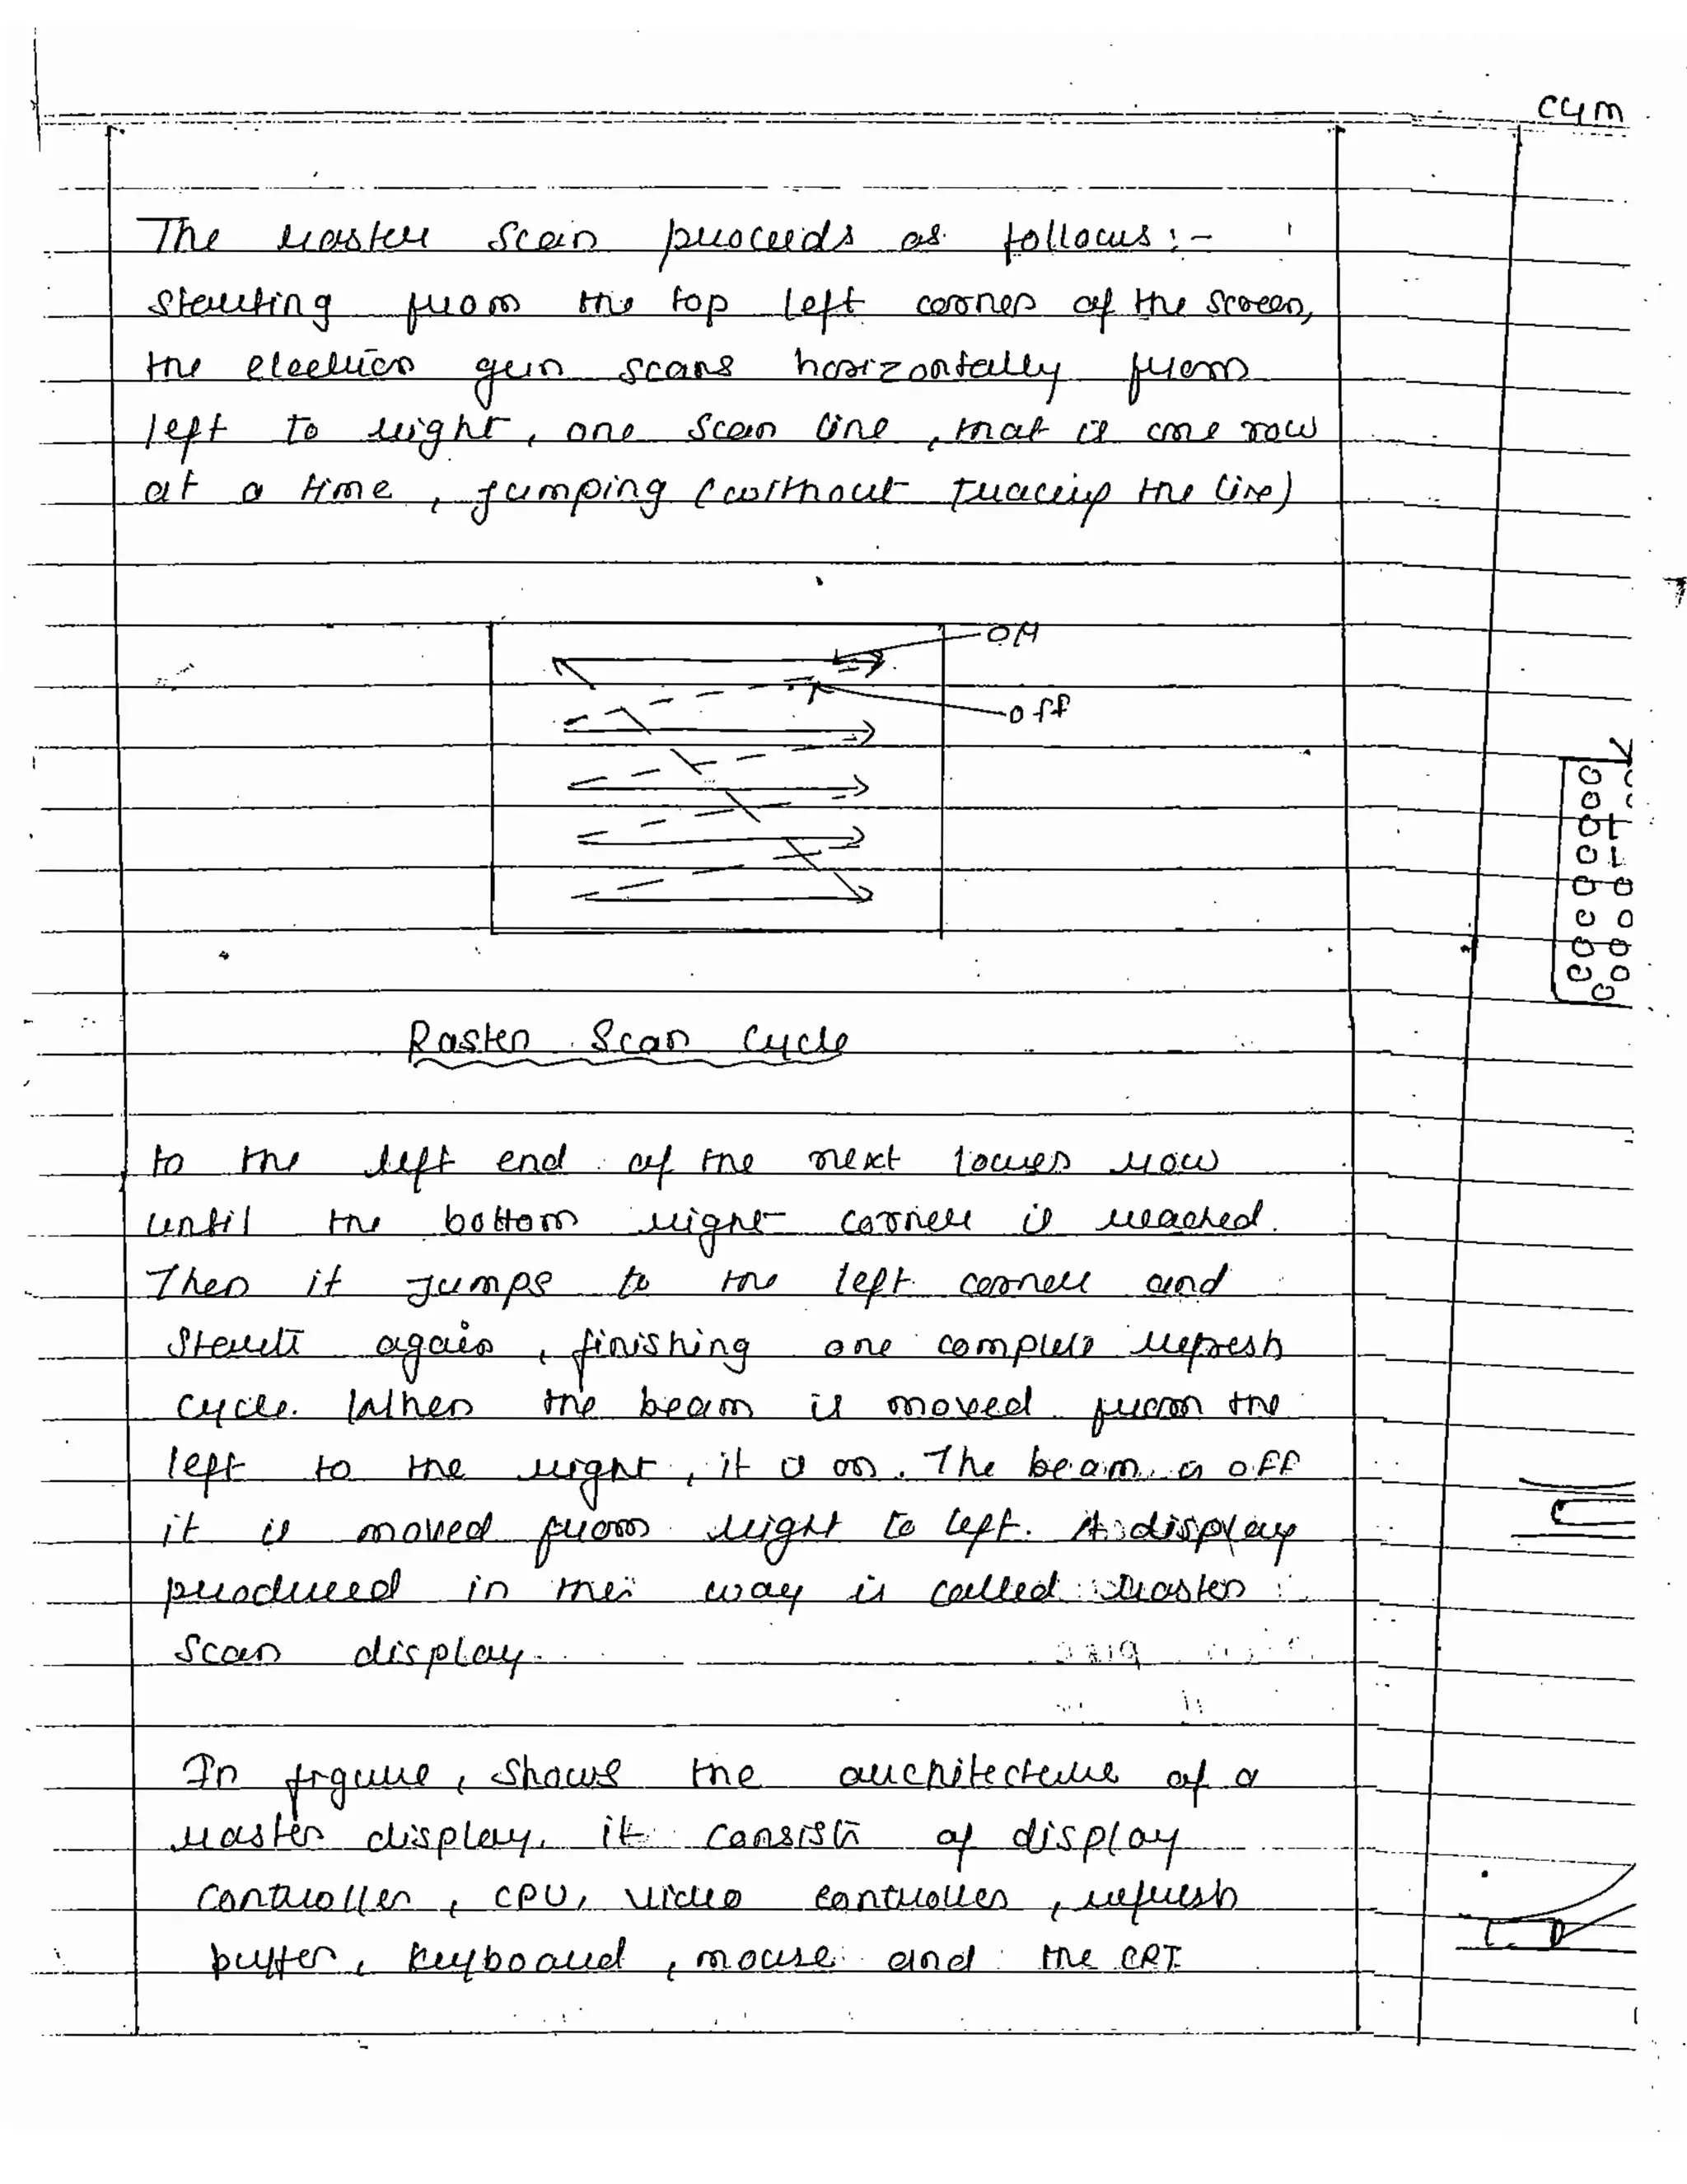 CYM
The raster scan proceeds as follows :-
Starting from the top left corner of the screen,
the electron gun scans horizontally from
left to right, one scan line, that is one row
at a time, jumping (without tracing the line)
ON
off
Raster Scan Cycle
to the left end of the next lower row
until the bottom right corner is reached.
Then it jumps to the left corner and
start again, finishing one complete refresh
cycle. When the beam is moved from the
left to the right, it is on. The beam is off
it is moved from right to left. A display
produced in this way is called raster
scan display.
In figure, shows the architecture of a
raster display. it consists of display
controller, CPU, video controller, refresh
buffer, keyboard, mouse and the CRT.